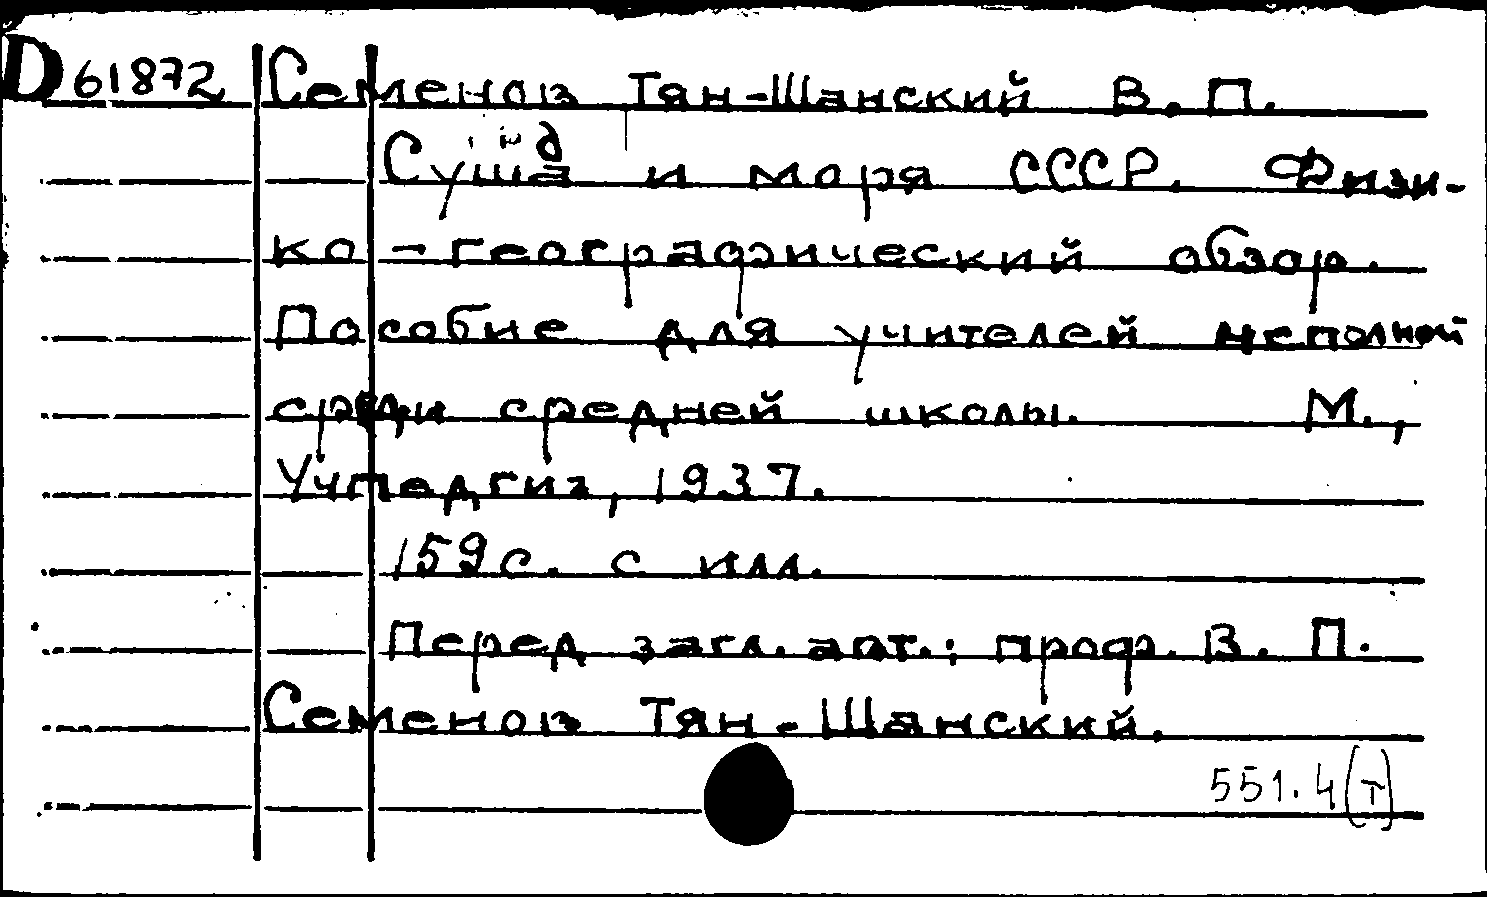 D 61872 Семенов Тян-Шанский В. П.
Суша и моря СССР. Физи-
ко-географический обзор.
Пособие для учителей неполной
средн средней школы. М.,
Учпедгиз, 1937.
159 с. с илл.
Перед загл. авт.: проф. В. П.
Семенов Тян-Шанский.
551.4(Т)